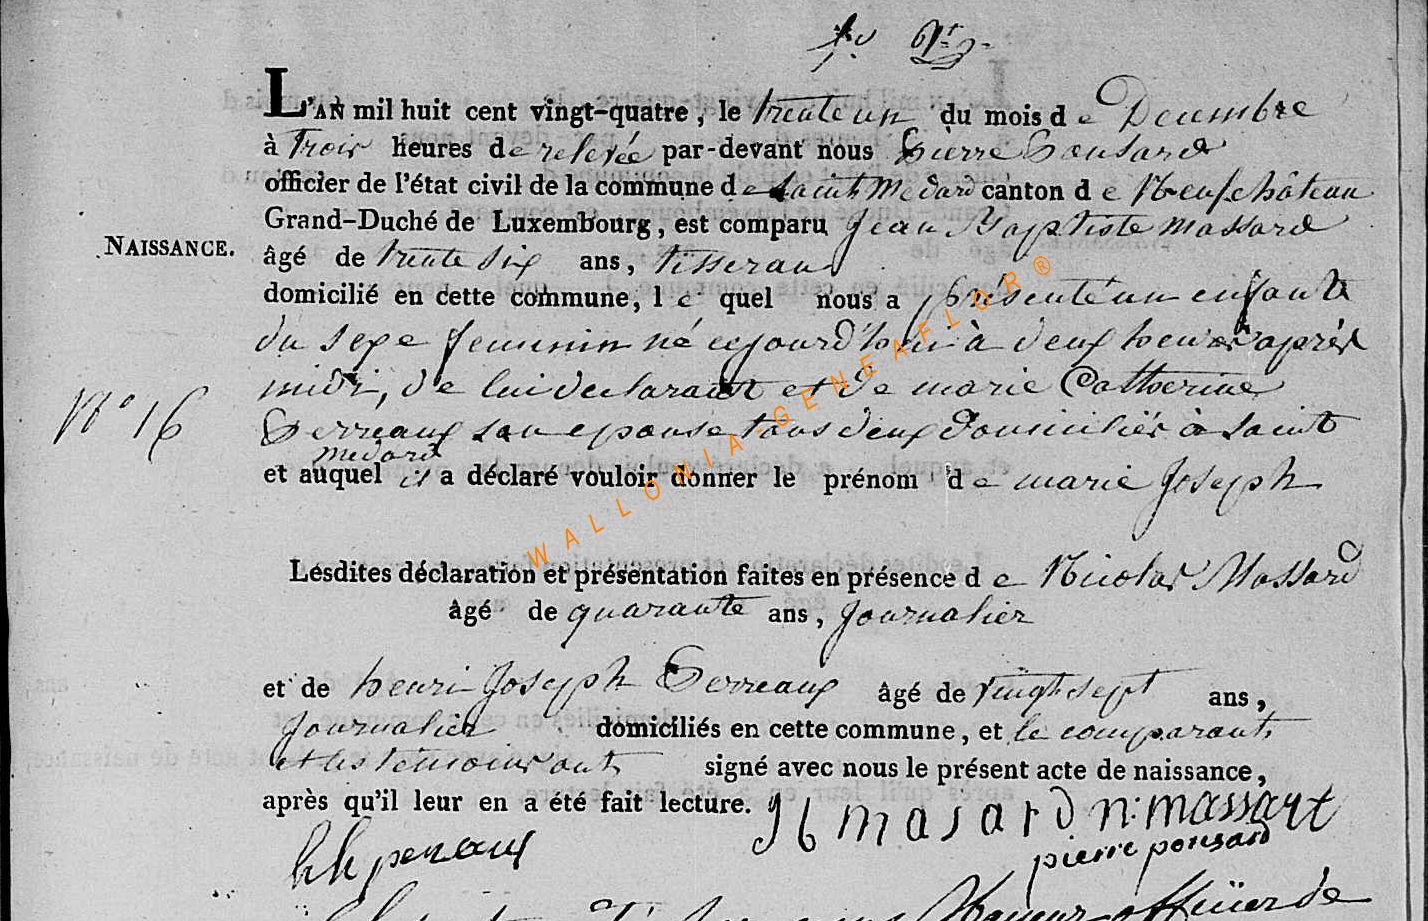 L'AN mil huit cent vingt-quatre, le trente un du mois de Decembre
à Trois heures de relevée par-devant nous Pierre Ponsard
officier de l'état civil de la commune de Saint Medard canton de Neufchâteau
Grand-Duché de Luxembourg, est comparu Jean Baptiste Massard
NAISSANCE.
âgé de trente six ans, tisserand
domicilié en cette commune, le quel nous a présenté un enfant
du sexe feminin né aujourd'hui à deux heures après
midi, de lui declarant et de marie Catherine
N° 16
Perreaux son epouse tous deux domiciliés à Saint
medard
et auquel il a déclaré vouloir donner le prénom de marie Joseph
WALLONIA-GENEAFLOR®
Lesdites déclaration et présentation faites en présence de Nicolas Massard
âgé de quarante ans, Journalier
et de henri Joseph Perreaux âgé de vingt sept ans,
Journalier domiciliés en cette commune, et le comparant
et les temoins ont signé avec nous le présent acte de naissance,
après qu'il leur en a été fait lecture.
masard n: massart
pierre ponsard